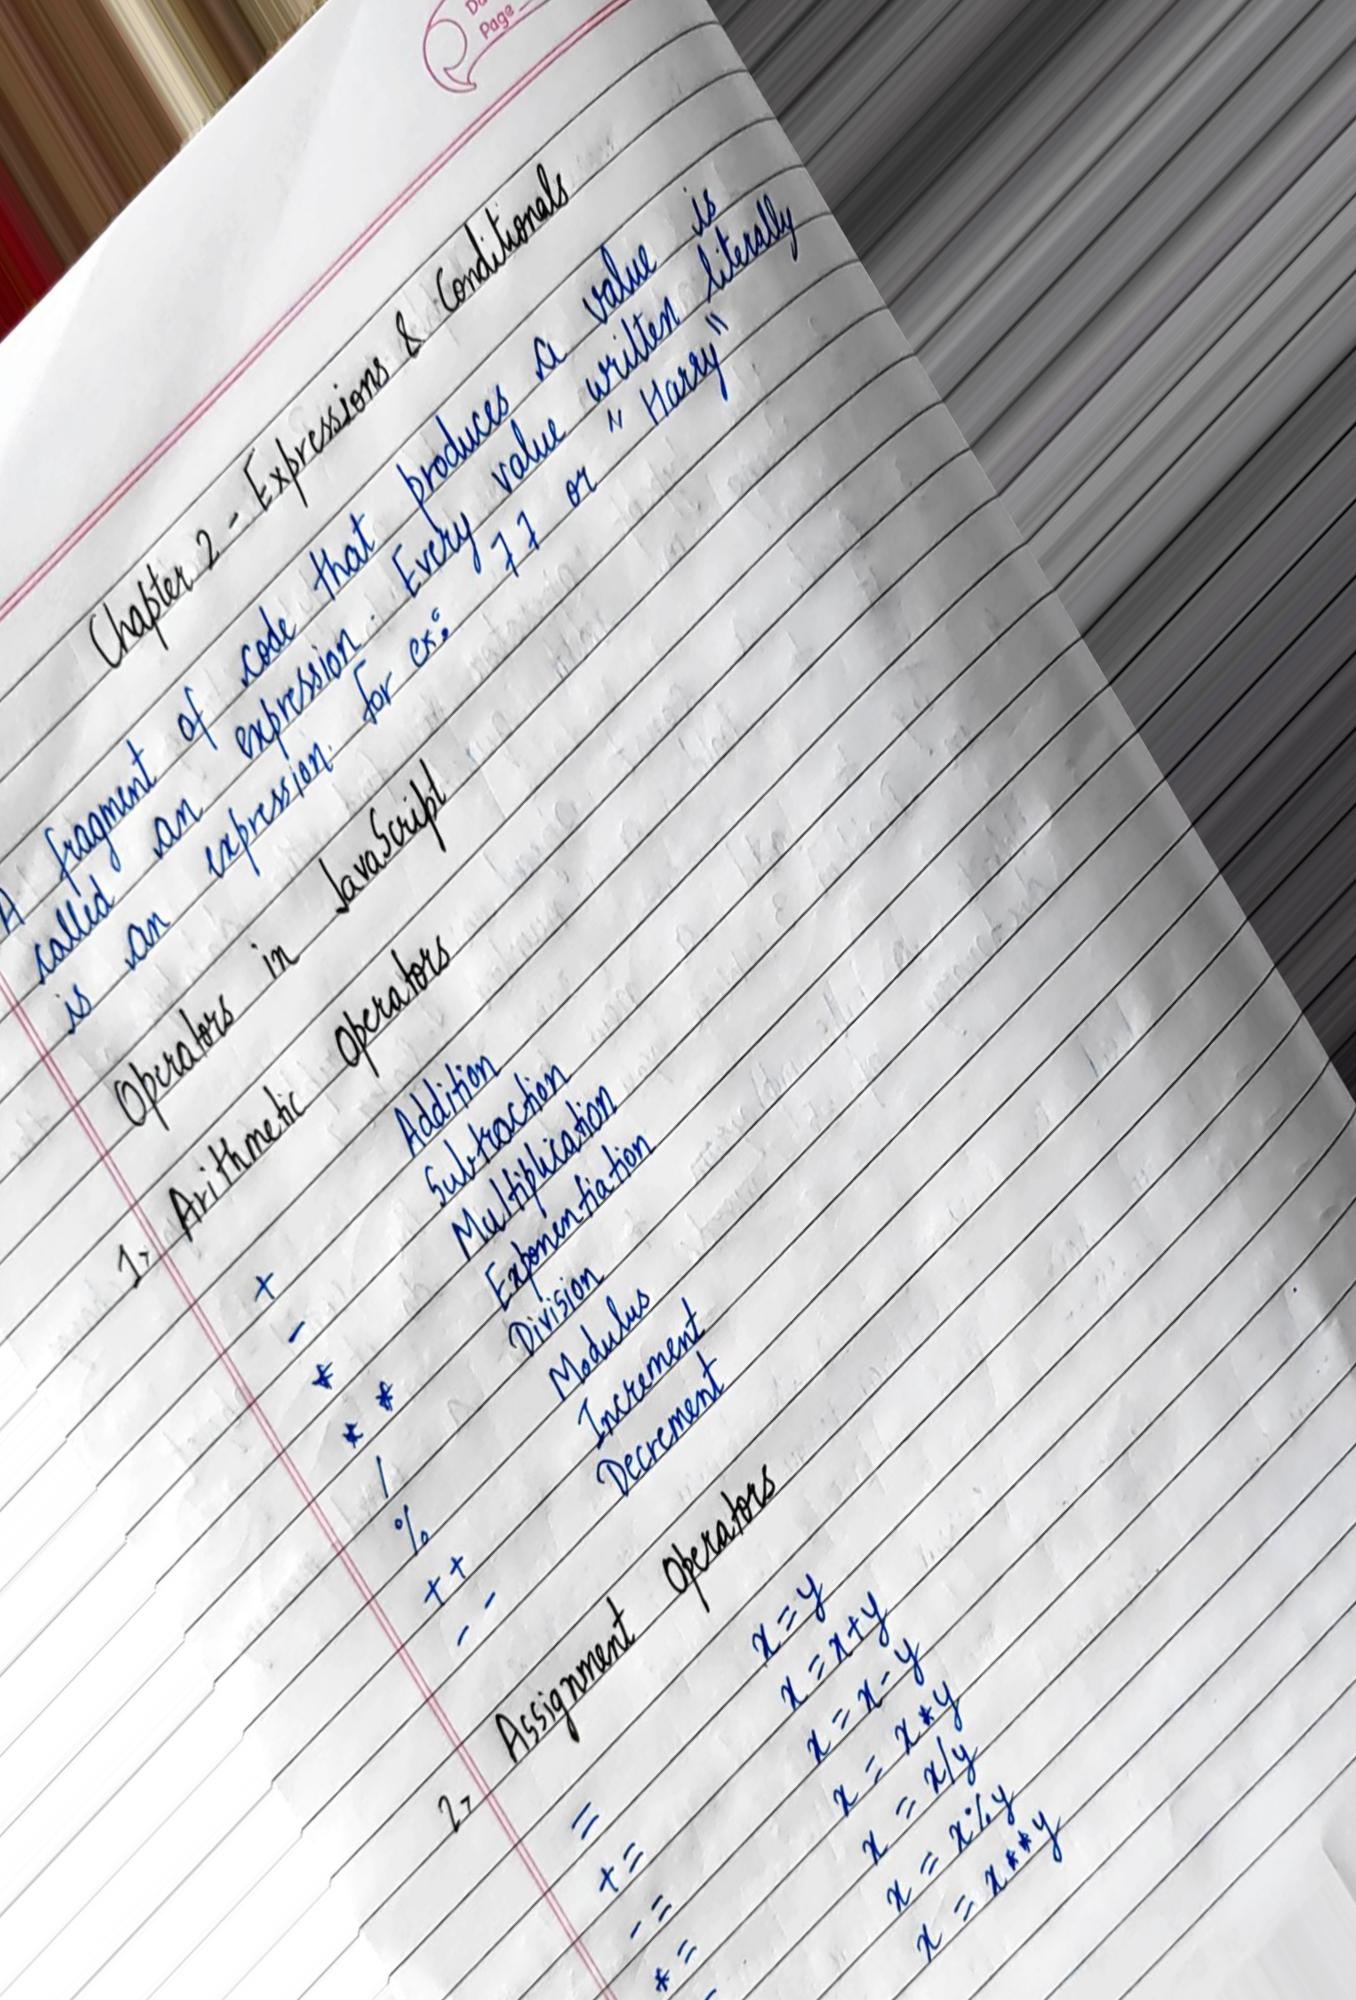 Da
Page
Chapter 2 - Expressions & Conditionals
A fragment of code that produces a value is
called an expression. Every value written literally
is an expression. for ex: 77 or "Harry"
Operators in JavaScript
1, Arithmetic Operators
+ Addition
- Subtraction
* Multiplication
** Exponentiation
/ Division
% Modulus
++ Increment
-- Decrement
2, Assignment Operators
= x=y
+= x=x+y
-= x=x-y
*= x=x*y
x=x/y
x=x%y
x=x**y